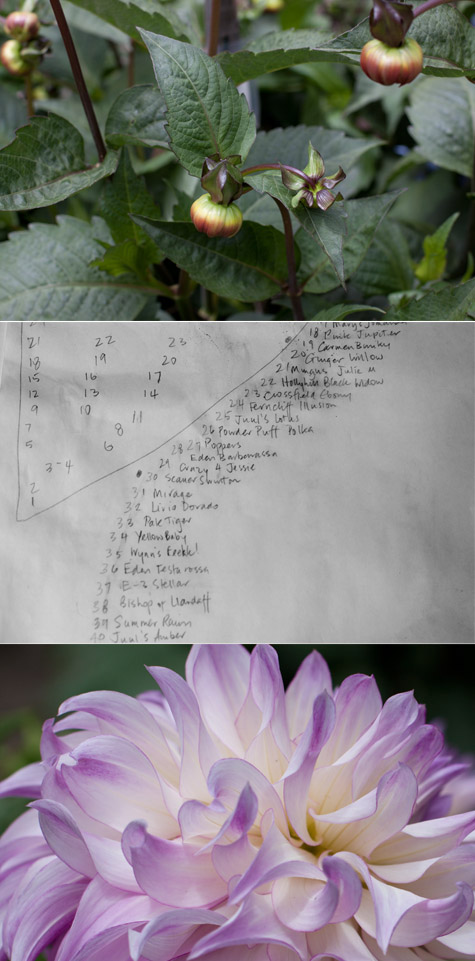 21 22 23
18 19 20
15 16 17
12 13 14
9 10
11
7
8
5 6
3-4
2
1
18 Punte Jupiter
19 Carmen Bunky
20 Ginger Willow
21 Mingus Julie M
22 Hollyhill Black Widow
23 Crossfield Ebony
24 Ferncliff Illusion
25 Juul's Lotus
26 Powder Puff Polka
28 27 Poppers
Eden Barbarossa
29 Crazy 4 Jessie
30 Seaner
31 Mirage
32 Livio Dorado
33 Pale Tiger
34 Yellow Baby
35 Wynn's
36 Eden Testarossa
37 IE-3 Stellar
38 Bishop of Llandaff
39 Summer Rawn
40 Juul's Amber